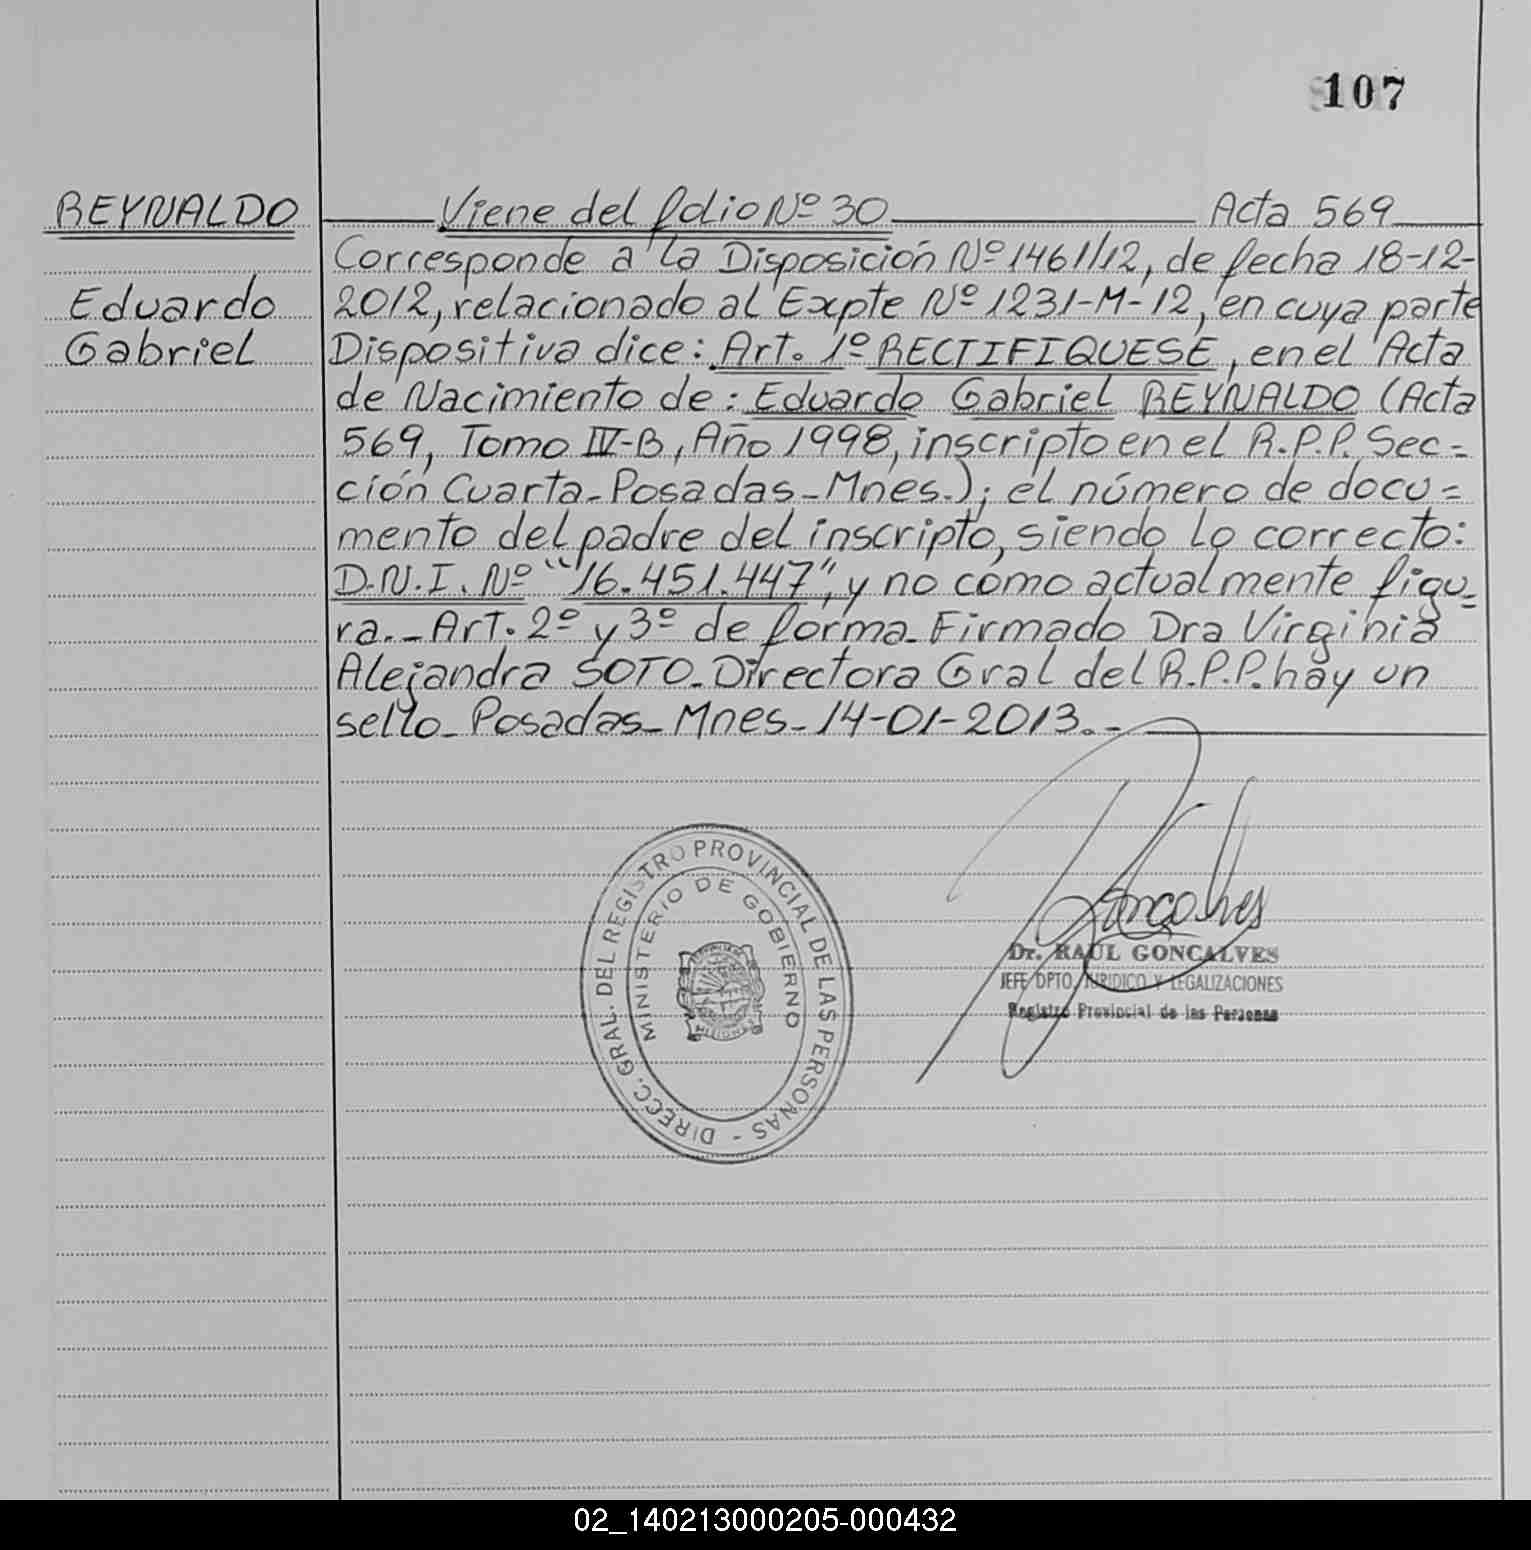 107
REYNALDO
Eduardo
Gabriel
Viene del folio Nº 30 Acta 569
Corresponde a la Disposición Nº 1461/12, de fecha 18-12-
2012, relacionado al Expte Nº 1231-M-12, en cuya parte
Dispositiva dice: Art. 1º RECTIFIQUESE, en el Acta
de Nacimiento de: Eduardo Gabriel REYNALDO (Acta
569, Tomo IV-B, Año 1998, inscripto en el R.P.P. Sec=
ción Cuarta-Posadas-Mnes.); el número de docu=
mento del padre del inscripto, siendo lo correcto:
D.N.I. Nº "16.451.447", y no como actualmente figu=
ra.- Art. 2º y 3º de forma- Firmado Dra Virginia
Alejandra SOTO- Directora Gral del R.P.P. hay un
sello- Posadas- Mnes- 14-01-2013.-
DIRECC. GRAL. DEL REGISTRO PROVINCIAL DE LAS PERSONAS -
MINISTERIO DE GOBIERNO
MISIONES
Goncalves
Dr. RAUL GONCALVES
JEFE DPTO. JURIDICO Y LEGALIZACIONES
Registro Provincial de las Personas
02_140213000205-000432